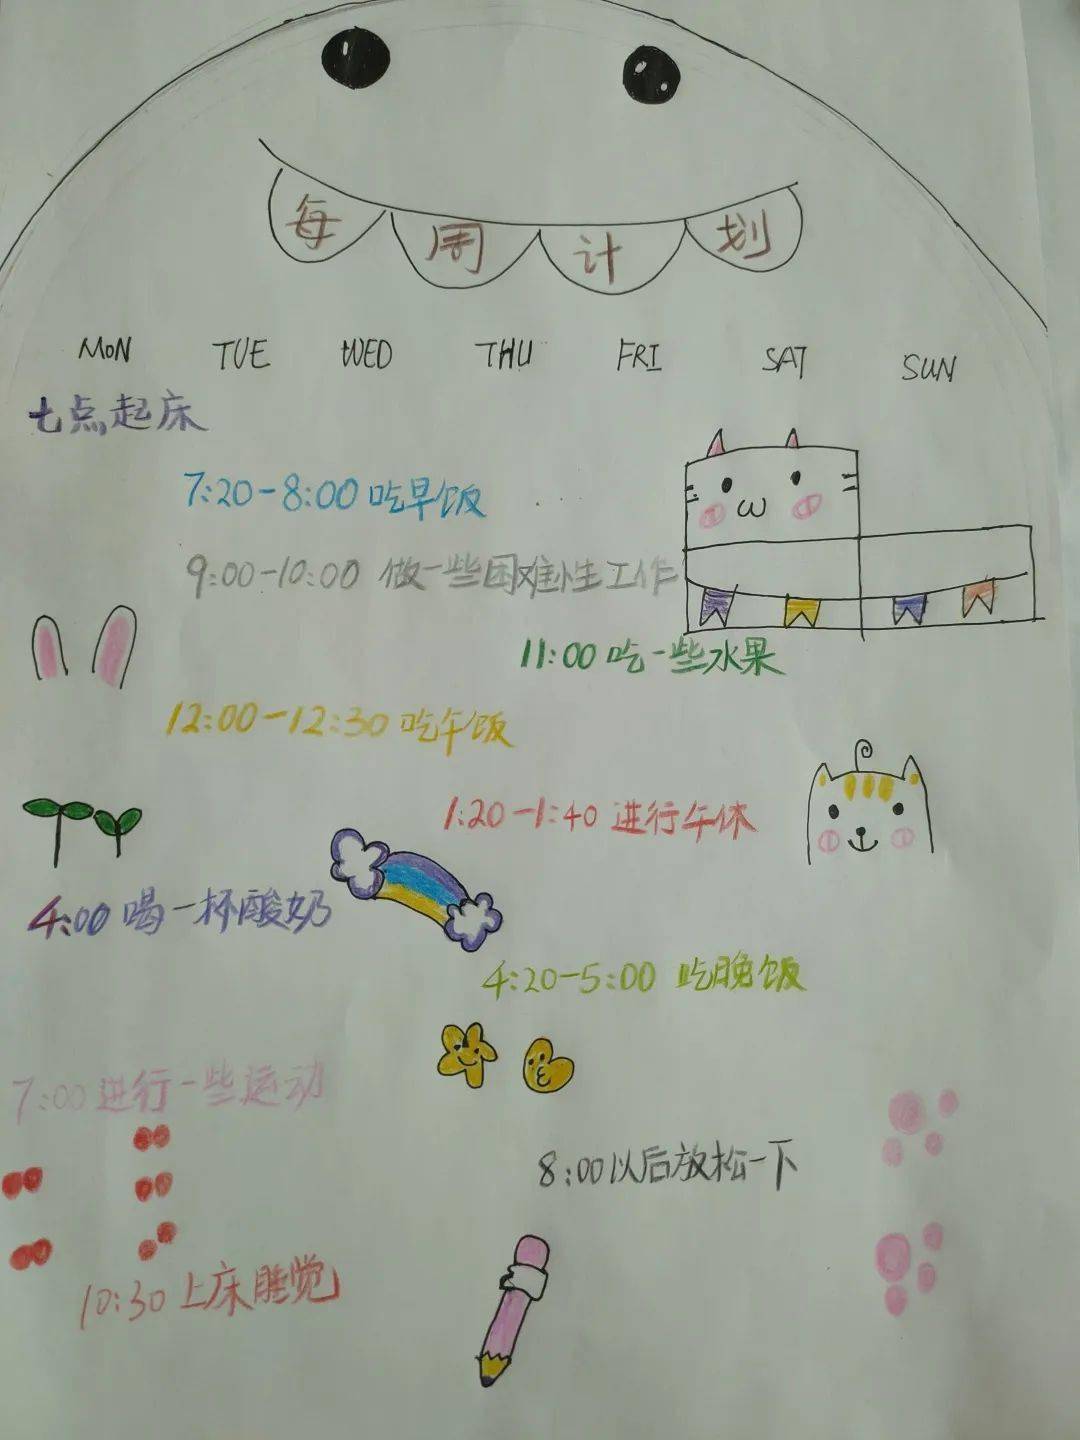 每周计划
MON TUE WED THU FRI SAT SUN
七点起床
7:20-8:00 吃早饭
9:00-10:00 做一些困难性工作
11:00 吃一些水果
12:00-12:30 吃午饭
1:20-1:40 进行午休
4:00 喝一杯酸奶
4:20-5:00 吃晚饭
7:00 进行一些运动
8:00以后放松一下
10:30 上床睡觉